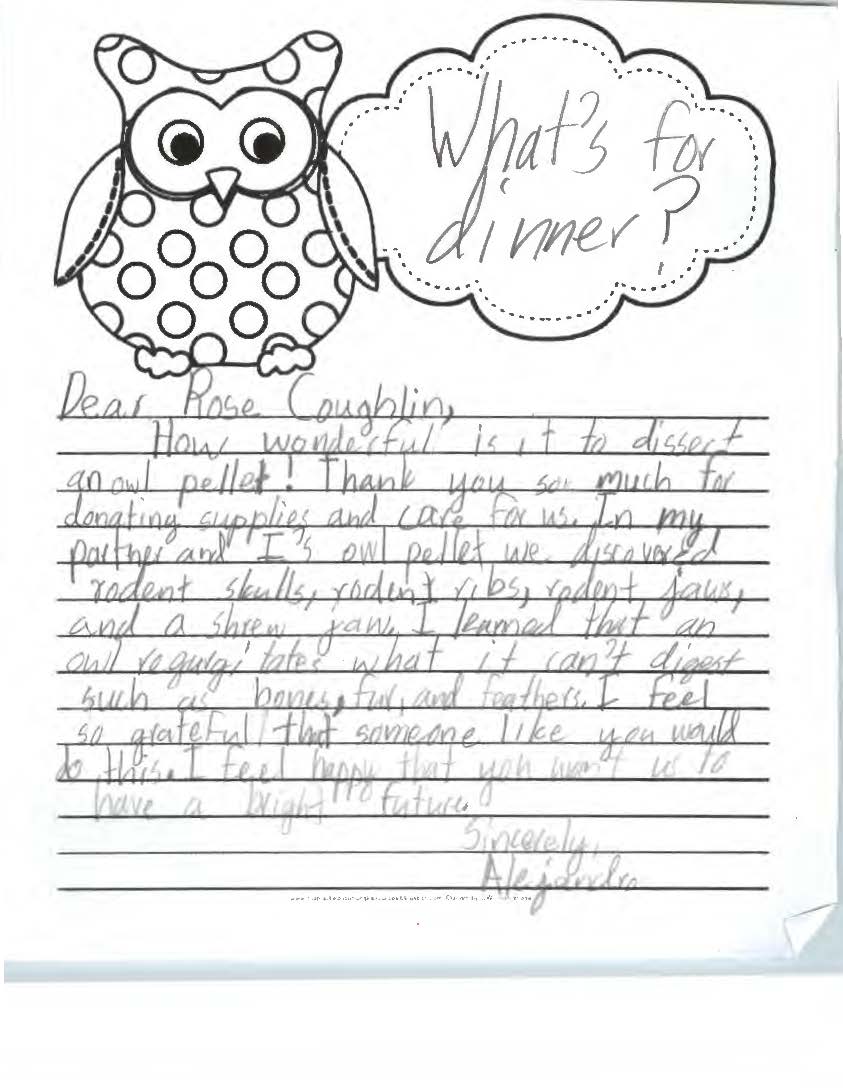 What's for
dinner?
Dear Rose Coughlin,
How wonderful is it to dissect
an owl pellet! Thank you so much for
donating supplies and care for us. In my
partner and I's owl pellet we discovered
rodent skulls, rodent ribs, rodent jaws,
and a shrew jaw. I learned that an
owl regurgitates what it can't digest
such as bones, fur, and feathers. I feel
so grateful that someone like you would
do this. I feel happy that you want us to
have a bright future.
Sincerely,
Alejandro